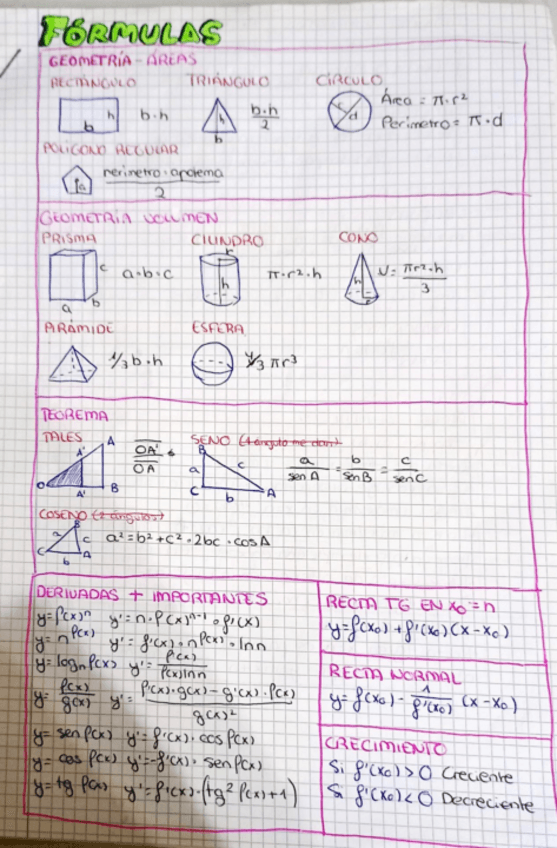 FÓRMULAS
GEOMETRÍA - ÁREAS
RECTÁNGULO TRIÁNGULO CÍRCULO
h b b·h
h b b·h/2
r d Área = π·r²
Perímetro = π·d
POLIGONO REGULAR
perimetro·apotema/2
GEOMETRÍA VOLUMEN
PRISMA CILINDRO CONO
a b c a·b·c
r h π·r²·h
h r V= πr²·h/3
PIRÁMIDE ESFERA
1/3 b·h
4/3 πr³
TEOREMA
TALES SENO (1 ángulo me dan)
O A' A A' B OA'/OA
B a c C b A a/senA = b/senB = c/senC
COSENO (2 ángulos)
B a c C b A a²=b²+c²·2bc·cosA
DERIVADAS + IMPORTANTES
y=f(x)ⁿ y'=n·f(x)ⁿ⁻¹·f'(x)
y=n^f(x) y'=f'(x)·n^f(x)·lnn
y=logₙf(x) y'=f'(x)/f(x)lnn
y=f(x)/g(x) y'=f'(x)·g(x)-g'(x)·f(x)/g(x)²
y=senf(x) y'=f'(x)·cosf(x)
y=cosf(x) y'=-f'(x)·senf(x)
y=tgf(x) y'=f'(x)·(tg²f(x)+1)
RECTA TG EN x₀=n
y=f(x₀)+f'(x₀)(x-x₀)
RECTA NORMAL
y=f(x₀)-1/f'(x₀)(x-x₀)
CRECIMIENTO
Si f'(x₀)>0 Creciente
Si f'(x₀)<0 Decreciente